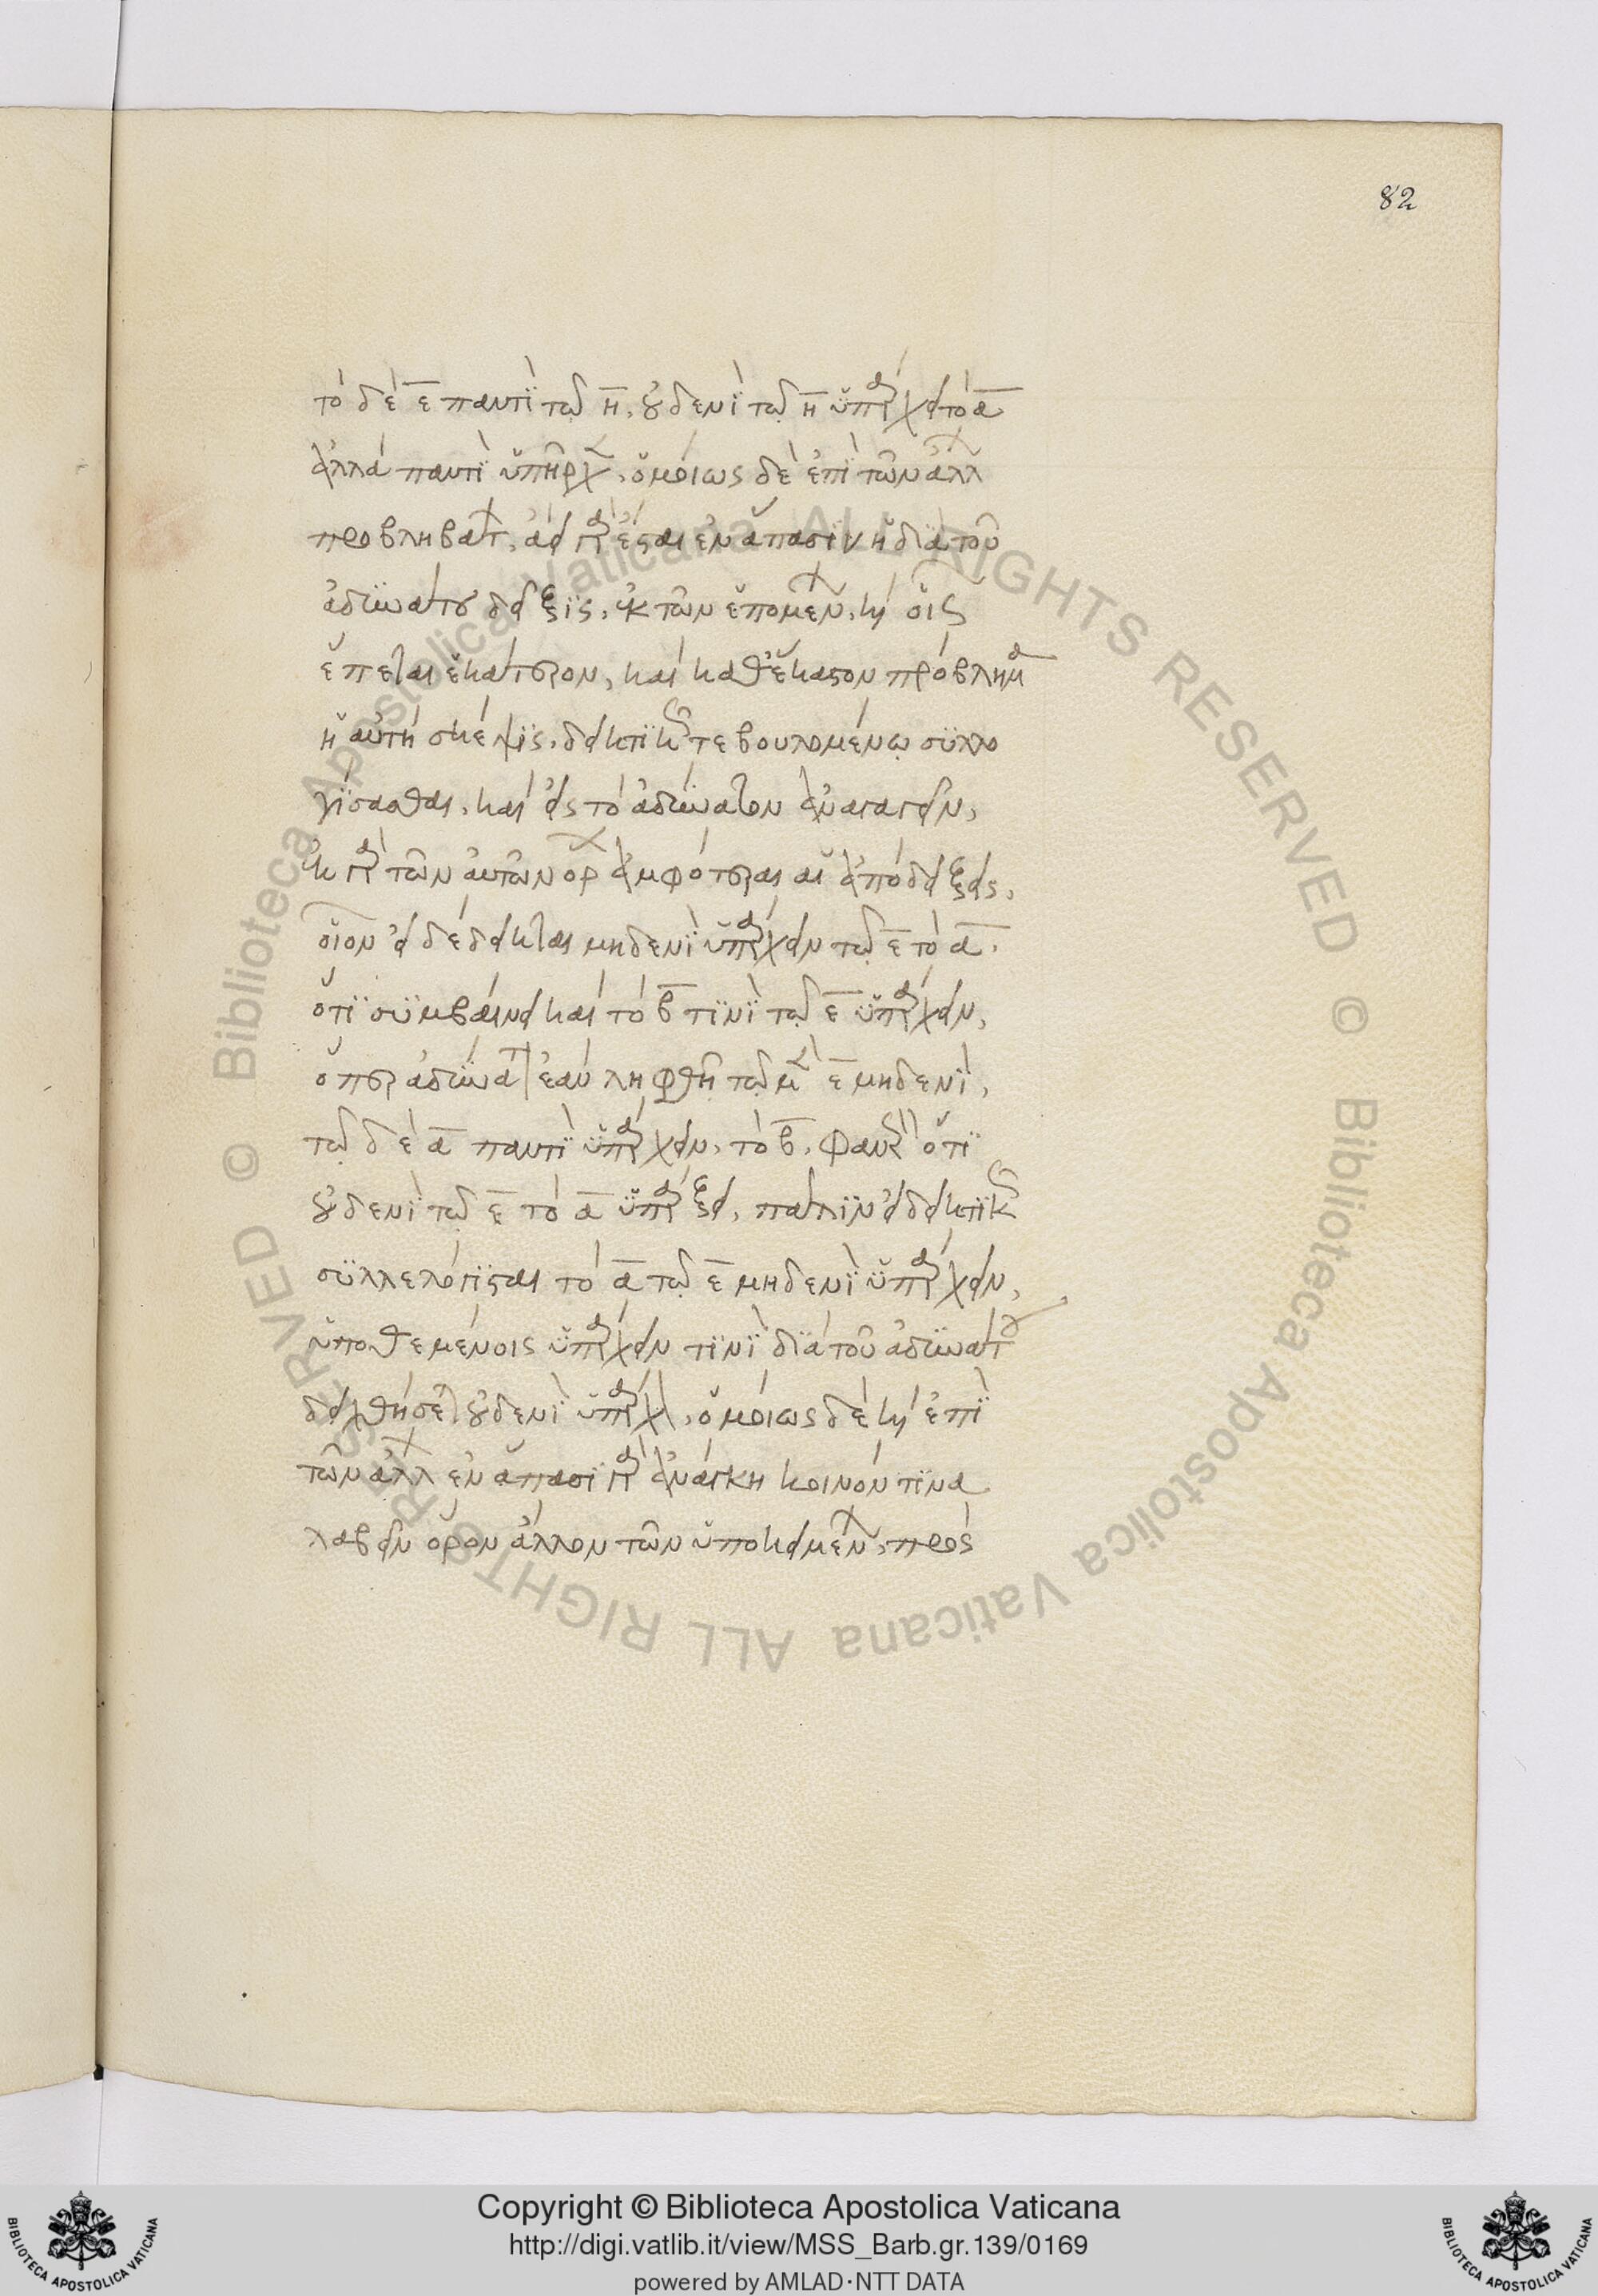 82
τὸ δὲ ε̄ παντὶ τῶ η̄, οὐδενὶ τῶ η̄ ὑπάρχει τὸ ᾱ
ἀλλὰ παντὶ ὑπῆρχεν, ὁμοίως δὲ ἐπὶ τῶν ἄλλων
προβληβάτων, ἀεὶ γὰρ ἔσται ἐν ἅπασιν ἡ διὰ τοῦ
ἀδυνάτου δεῖξις, ἐκ τῶν ἑπομένων, καὶ οἷς
ἕπεται ἑκάτερον, καὶ καθ' ἕκαστον πρόβλημα
ἡ αὐτὴ σκέψις, δεικτικῶς τε βουλομένω συλλο
γίσασθαι, καὶ εἰς τὸ ἀδύνατον ἀναγαγεῖν,
ἐκ γὰρ τῶν αὐτῶν ὅρων ἀμφότεραι αἱ ἀποδείξεις,
οἷον εἰ δέδεικται μηδενὶ ὑπάρχειν τῶ ε̄ τὸ ᾱ.
ὅτι συμβαίνει καὶ τὸ β̄ τινὶ τῶ ε̄ ὑπάρχειν,
ὅπερ ἀδύνατον ἐὰν ληφθῆ τῶ μὲν ε̄ μηδενὶ,
τῶ δὲ ᾱ παντὶ ὑπάρχειν, τὸ β̄, φανερὸν ὅτι
οὐδενὶ τῶ ε̄ τὸ ᾱ ὑπάρξει, πάλιν εἰ δεικτικῶς
συλλελόγισται τὸ ᾱ τῶ ε̄ μηδενὶ ὑπάρχειν,
ὑποθεμένοις ὑπάρχειν τινὶ διὰ τοῦ ἀδυνάτου
δειχθήσεται οὐδενὶ ὑπάρχον, ὁμοίως δὲ καὶ ἐπὶ
τῶν ἄλλων ἐν ἅπασι γὰρ ἀνάγκη κοινόν τινα
λαβεῖν ὅρον ἄλλον τῶν ὑποκειμένων, πρὸς
Copyright © Biblioteca Apostolica Vaticana
http://digi.vatlib.it/view/MSS_Barb.gr.139/0169
powered by AMLAD·NTT DATA